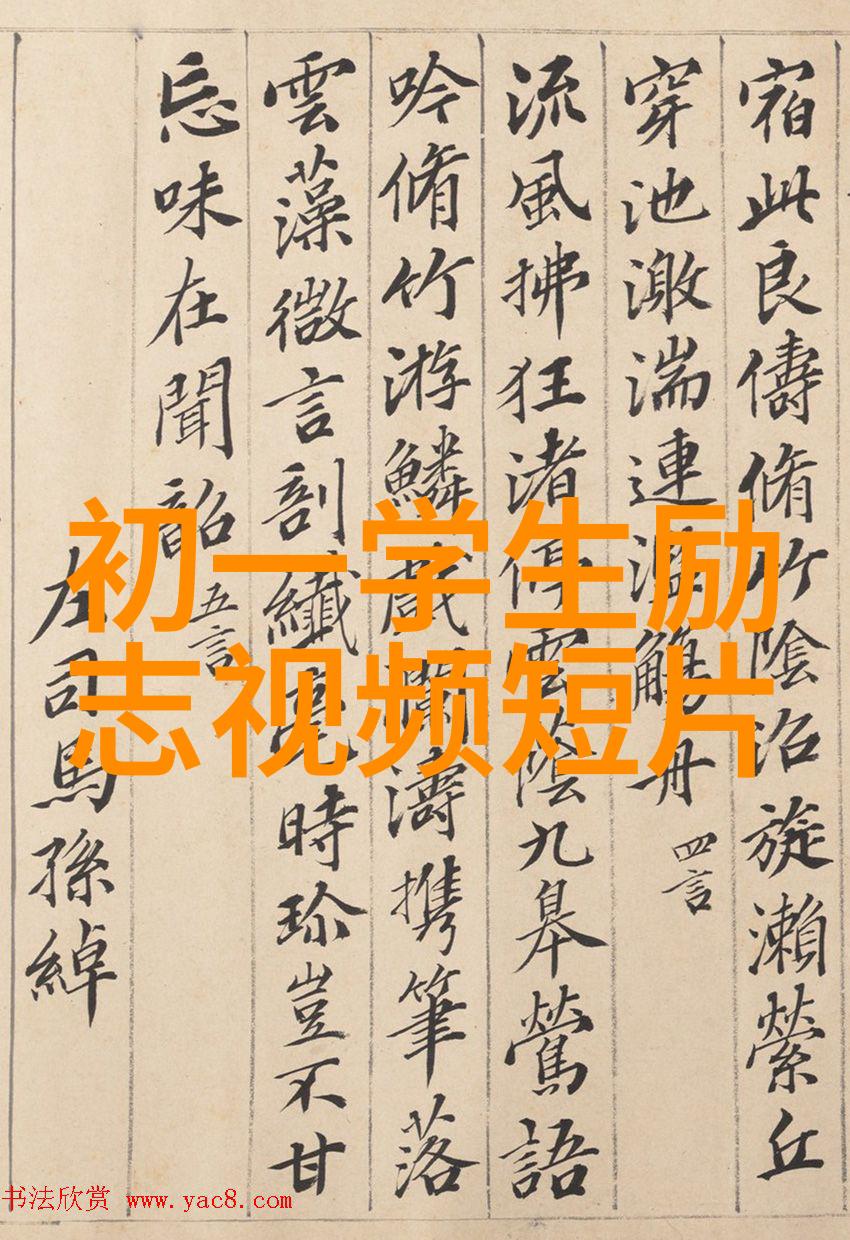 宿此良儔脩竹陰沼旋瀨縈丘
穿池激湍連濫觴舟 四言
流風拂狂渚停雲陰九皋鶯語
吟脩竹游鱗戲瀾濤携筆落
雲藻微言剖纖毫時珍豈不甘
忘味在聞韶 五言
左司馬孫綽
初一学生励
志视频短片
书法欣赏 www.yac8.com